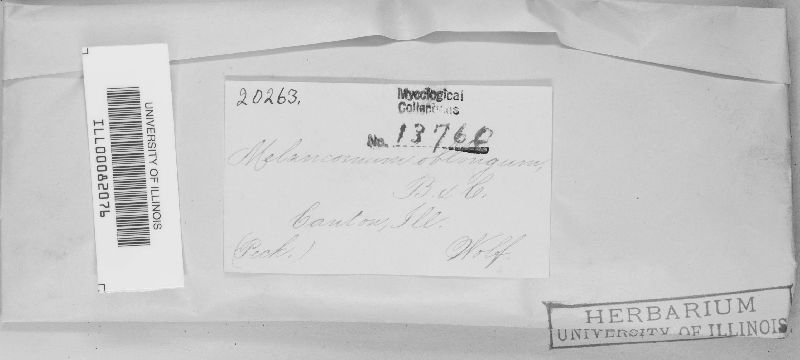 UNIVERSITY OF ILLINOIS
ILL00082076
20263.
Mycological
Collections
No. 13760
Melanconium oblongum,
B & C.
Canton, Ill.
(Peck.) Wolf.
HERBARIUM
UNIVERSITY OF ILLINOIS